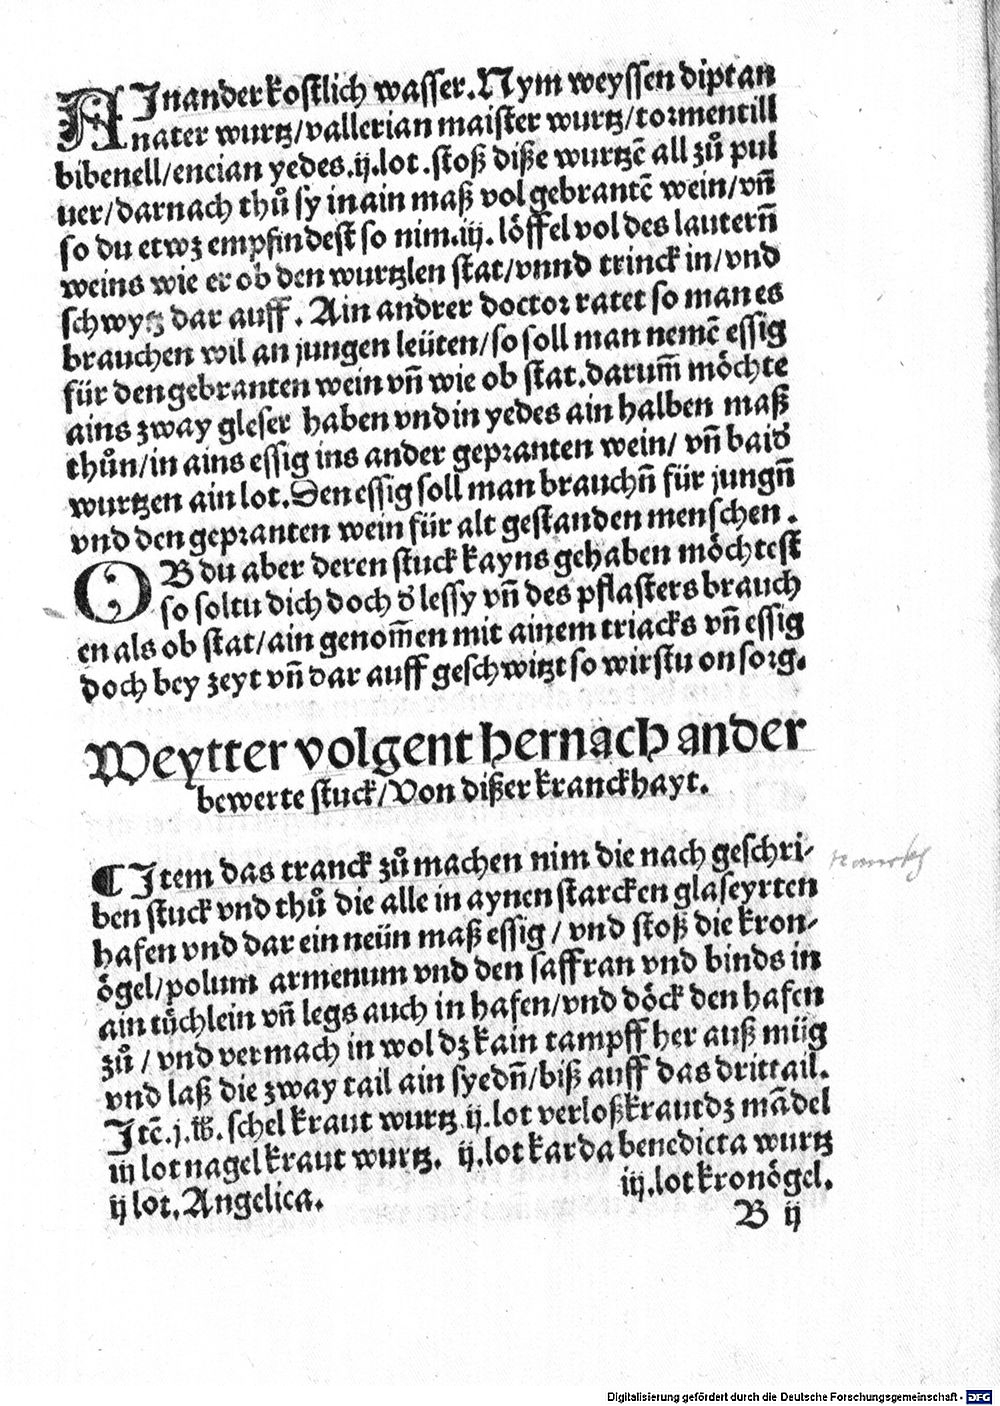 AJn ander kostlich wasser. Nym weyssen diptan
nater wurtz/vallerian maister wurtz/tormentill
bibenell/encian yedes.ij.lot.stoß diße wurtzē all zů pul
uer/darnach thů sy in ain maß vol gebrantē wein/vn̄
so du etwz empfindest so nim.iij. löffel vol des lautern̄
weins wie er ob den wurtzlen stat/vnnd trinck in/vnd
schwytz dar auff. Ain andrer doctor ratet so man es
brauchen wil an jungen leüten/so soll man nemē essig
für den gebranten wein vn̄ wie ob stat.darum̄ möchte
ains zway gleser haben vnd in yedes ain halben maß
thůn/in ains essig ins ander gepranten wein/ vn̄ baid
wurtzen ain lot. Den essig soll man brauchn̄ für jungn̄
vnd den gepranten wein für alt gestanden menschen.
OB du aber deren stuck kayns gehaben möchtest
so soltu dich doch d̄ lessy vn̄ des pflasters brauch
en als ob stat/ain genom̄en mit ainem triacks vn̄ essig
doch bey zeyt vn̄ dar auff geschwitzt so wirstu on sorg.
Weytter volgent hernach ander
bewerte stuck/Von dißer kranckhayt.
¶ Jtem das tranck zů machen nim die nach geschri-
ben stuck vnd thů die alle in aynen starcken glaseyrten
hafen vnd dar ein neün maß essig / vnd stoß die kron-
ögel/polum armenum vnd den saffran vnd binds in
ain tůchlein vn̄ legs auch in hafen/vnd döck den hafen
zů / vnd vermach in wol dz kain tampff her auß müg
vnd laß die zway tail ain syedn̄/biß auff das drittail.
Jtē.j.℔. schelkraut wurtz.ij.lot verloßkrautdz mādel
iij lot nagelkraut wurtz. ij.lot karda benedicta wurtz
ij lot.Angelica. iij.lot kronögel.
B ij
Digitalisierung gefördert durch die Deutsche Forschungsgemeinschaft - DFG